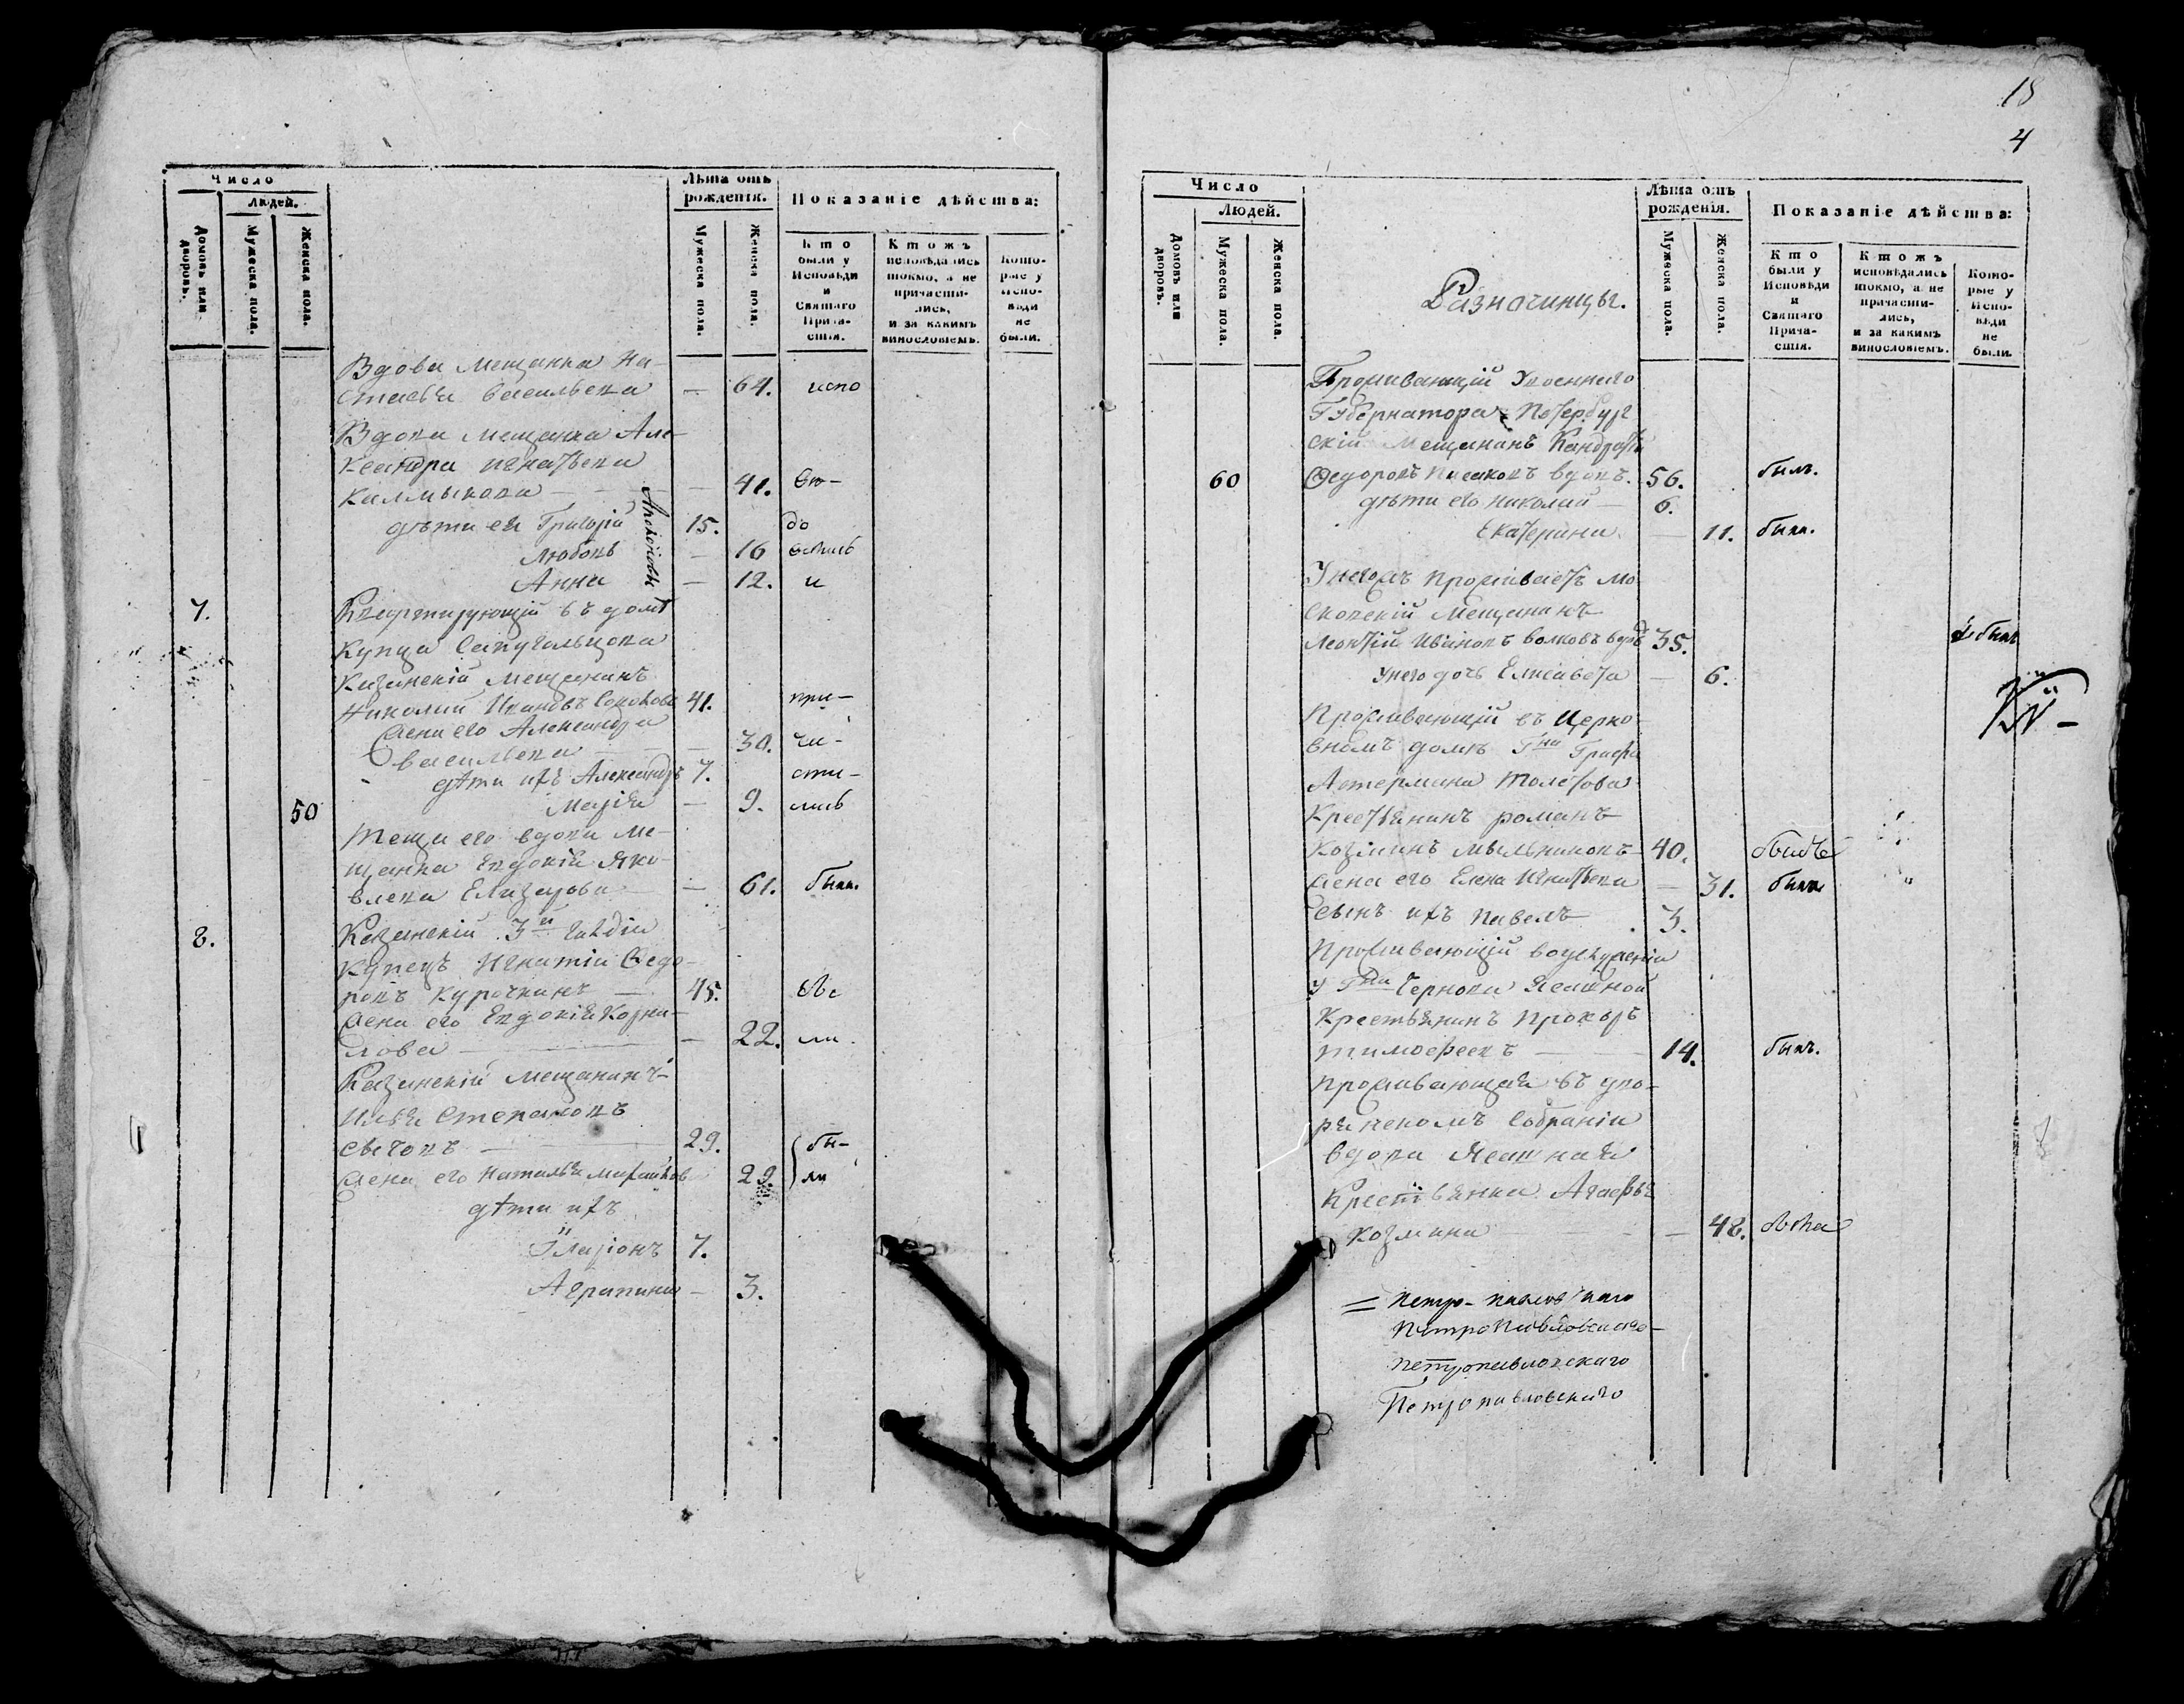 Число
Людей.
Домовъ или дворовъ.
Мужеска пола.
Женска пола.
Лѣта отъ рожденія.
Мужеска пола.
Женска пола.
Показаніе дѣйства:
Кто были у Исповѣди и Святаго Прича-стія.
Ктожъ исповѣдались токмо, а не причасти-лись, и за какимъ винословіемъ.
Кото-рые у Испо-вѣди не были.
Вдова Мещанка На-
стасья Васильева — 64. испо
Вдова Мещанка Але-
ксандра Игнатьева
Калмыкова — 41. вѣ-
дѣти ея Григорій 15. до
Любовь — 16 вались
Анна — 12. и
7. Квартирующій въ домѣ
Купца
Казанскій Мещанинъ
Николай Ивановъ 41. при-
Жена его Александра
Васильева — 30. ча-
дѣти ихъ Александръ 7. сти-
50 Марія — 9. лись
Теща его вдова Ме-
щанка Евдокія Яко-
влева Елизарова — 61. была.
8. Казанскій 3й гилдіи
Купецъ Игнатій Ѳедо-
ровъ Курочкинъ — 45.
Жена его Евдокія Корни-
лова — 22. ли.
Казанскій мещанинъ
Илья Степановъ
Сычовъ — 29. бы-
Жена его Наталья 29. ли
дѣти ихъ
Иларіонъ 7.
Агрипина — 3.
18
4
Число
Людей.
Домовъ или дворовъ.
Мужеска пола.
Женска пола.
Разночинцы.
Лѣта отъ рожденія.
Мужеска пола.
Женска пола.
Показаніе дѣйства:
Кто были у Исповѣди и Святаго Прича-стія.
Ктожъ исповѣдались токмо, а не причасти-лись, и за какимъ винословіемъ.
Кото-рые у Испо-вѣди не были.
Проживающій Увоеннаго
Губернатора Петербург
скій Мещанинъ Кандратій
60 Ѳедоровъ вдовъ. 56. былъ.
дѣти его Николай — 6.
Екатерина — 11. была.
Унегожъ проживаетъ Мо
сковскій Мещанинъ
Леонтій Ивановъ Волковъ вдовъ 35.
Унего дочь Елисавета — 6.
Проживающій въ Церко
вномъ домѣ Гна Графа
Астермана Толстова
Крестьянинъ Романъ
Козминъ Мыльниковъ 40.
Жена его Елена Игнатьева — 31. была
Сынъ ихъ Павелъ 3.
Проживающій
у Гна Чернова Ясашной
Крестьянинъ Прокъръ
Тимофеевъ — 14. былъ.
Проживающая въ дво-
рянскомъ Собраніи
вдова Ясашная
Крестьянка Агафья
Козмина — 48.
= Петро-павловскаго
Петропавловскаго-
Петропавловскаго
Петропавловскаго